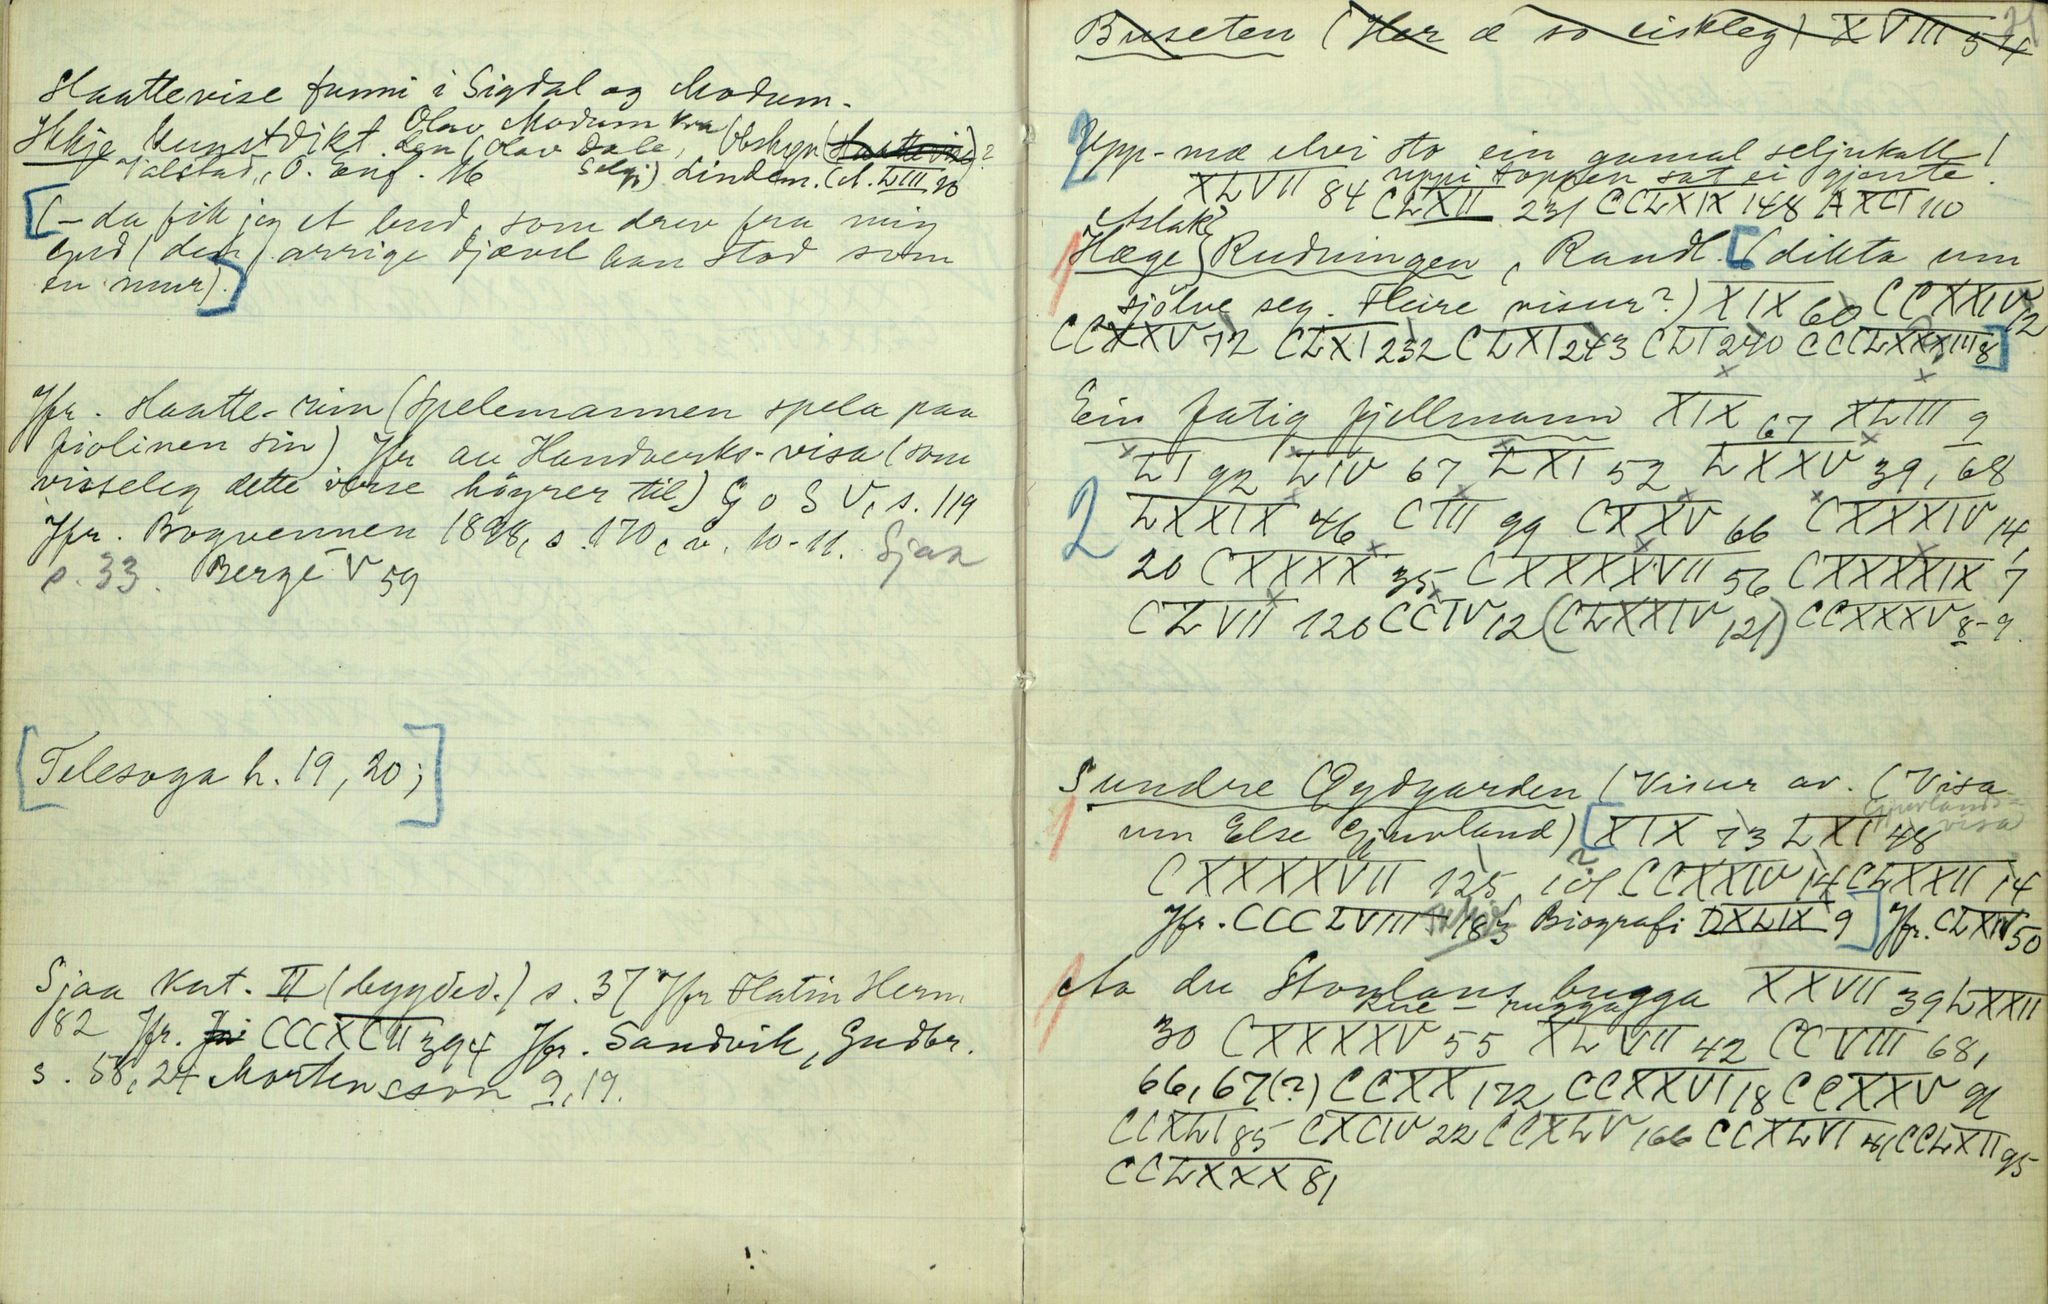 Haattevise funni i Sigdal og Modum.
Olav Modum kva
Ikkje Kunstdikt. den (Olav Dale, Obskyn (Haattevise)?
Jalstad, O. Eng. 16 Selgj) Lindem. (M. LIII, 20
(- da fik jeg et bud, som drev fra mig
gud (den) arrige djævel han stod som
en mur).
Jfr. Haatte-rim (Spelemannen spela paa
fiolinen sin) Jfr au Handverks-visa (som
visseleg dette verse høyrer til) G o S V, s. 119
Jfr. Bogvennen 1898, s. 170, v. 10-11. Sjaa
s. 33. Berge V 59
Telesoga h. 19, 20;
Sjaa Kat. II (bygded.) s. 37 Jfr Hatin Herm
182 Jfr. CCCXCII 394 Jfr. Sandvik, Gudbr.
s. 58, 24 Mortensson 2, 19.
Buseten (Her æ so eiskleg) XVIII 54
2 Upp-mæ elvi sto ein gamal seljukall /
uppi toppen sat ei gjente.
XLVII 84 CLXII 231 CCLXIX 148 AXCI 110
Aslak?
1 Hæge } Rudningen, Randl. [(dikta um
sjölve seg. Fleire visur?) XIX 60 CCXXIV 12
CCXXV 72 CLXI 232 CLXI 243 CLI 240 CCCLXXXIII 8]
Ein fatig fjellmann XIX 67 XLIII 9
LI 92 LIV 67 LXI 52 LXXV 39, 68
2 LXXIX 46 CIII 99 CXXV 66 CXXXIV 14,
20 CXXXX 35 CXXXXVII 56 CXXXXIX 7
CLVII 120 CCIV 12 (CLXXIV 121) CCXXXV 8-9.
Sundre Øydgarden (Visur av. (Visa
Gjuvlands-
visa
1 um Else Gjuvland) [XIX 73 LXI 48
CXXXXVII 125, 101 CCXXIV 14 CLXXII 14
Jfr. CCCLVIII 183 Biografi DXLIX 9] Jfr. CLXIV 50
1 Aa du Storlans brugga XXVII 39 LXXII
rugga
30 CXXXXV 55 XLVII 42 CCVIII 68,
66, 67(?) CCXX 172 CCXXVI 18 CCXXV 91
CCXLI 85 CXCIV 22 CCXLV 166 CCXLVI 41 CCLXII 95
CCLXXX 81